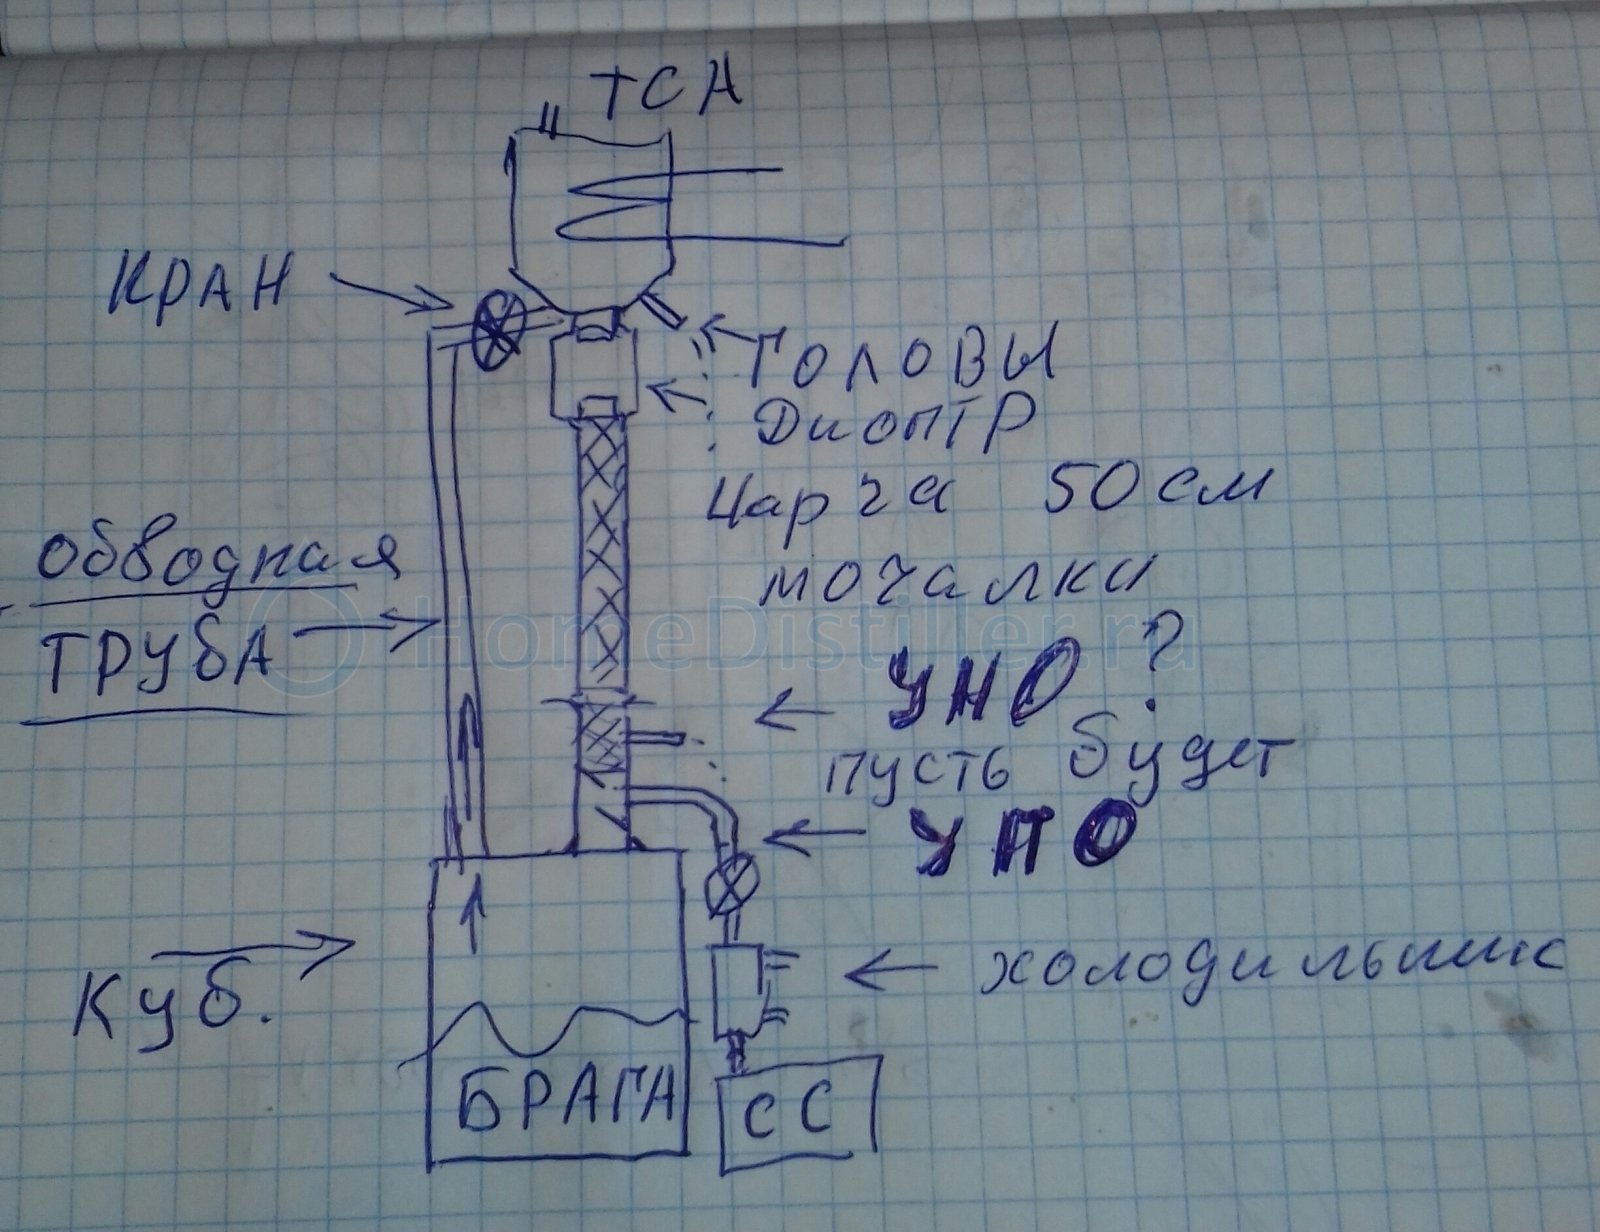 ТСА
КРАН
ГОЛОВЫ
Диоптр
Царга 50 см
мочалки
Обводная
ТРУБА
HomeDistiller.ru
УНО?
пусть будет
УПО
Куб.
холодильник
БРАГА
СС